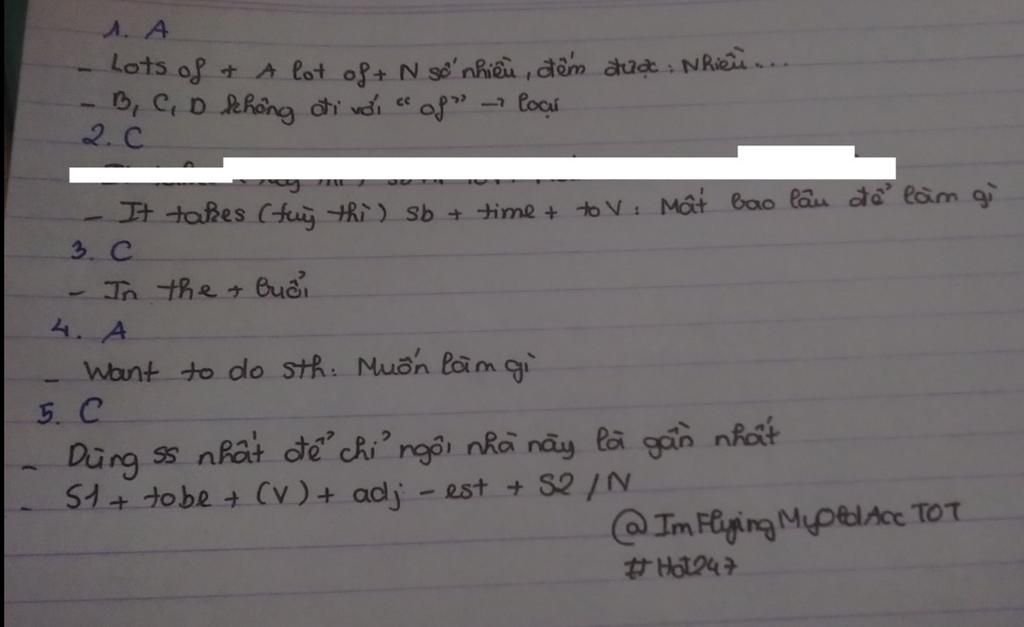 1. A
- Lots of + A lot of + N số nhiều, đếm được: Nhiều...
- B, C, D không đi với "of" → loại
2. C
- It takes (tuỳ thì) sb + time + to V: Mất bao lâu để làm gì
3. C
- In the + buổi
4. A
- Want to do sth: Muốn làm gì
5. C
- Dùng ss nhất để chỉ ngôi nhà này là gần nhất
- S1 + tobe + (V) + adj - est + S2 / N
@ImFlyingMyOldAccTOT
#Hoi247